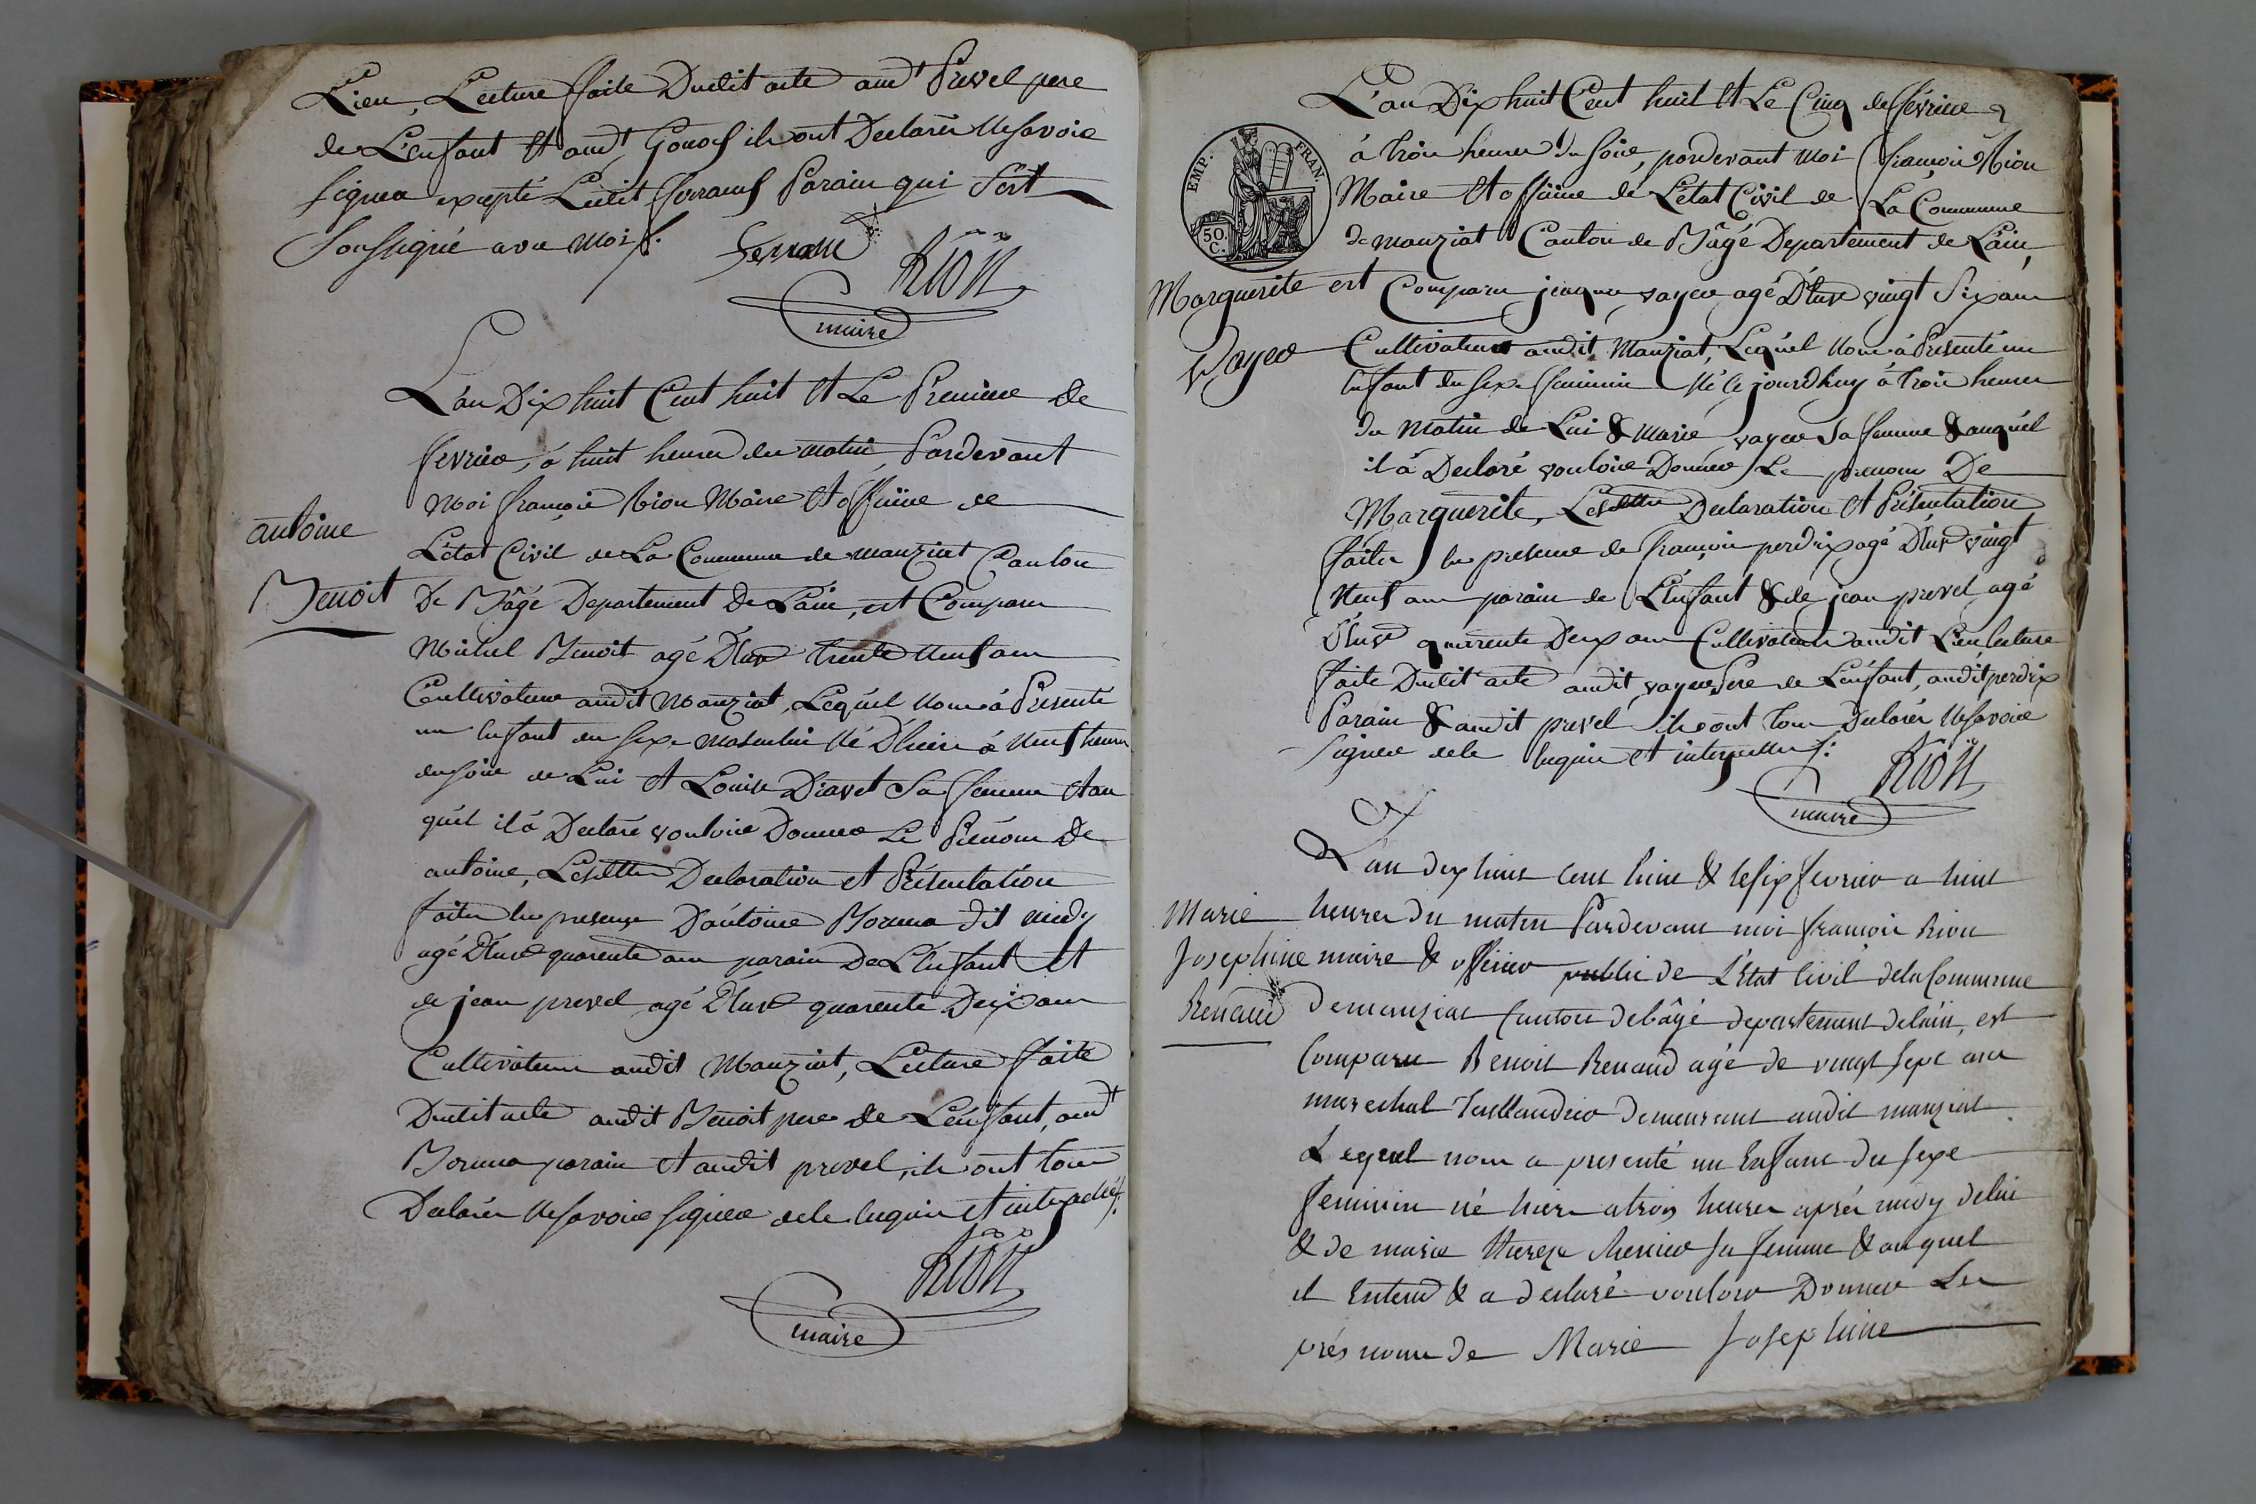 Lieu, Lecture faite Dudit acte aud.t Prevel pere
de L'enfant et aud.t Gonod ils ont Declarés Ne savoir
signer excepté Ledit Ferrand Parain qui s'est
Soussigné avec moi.
Ferrand
RION
maire
L'an Dix huit Cent huit et Le Premier De
fevrier, à huit heures du matin, Pardevant
Moi françois Rion Maire et officier de
L'état Civil de La Commune de manziat Canton
De Bâgé Departement De L'ain, est Comparu
antoine
Benoit
Michel Benoit agé D'Env. trente neuf ans
Cultivateur audit Manziat, Lequel Nous à Presenté
un Enfant du sexe masculin Né D'hier à Neuf heures
du soir de Lui et Louise Diavet Sa femme et au
quel il à Declaré vouloir Donner Le Prénom De
antoine, Lesdittes Declaration et Présentation
faites En presence D'antoine Borma dit
agé D'Env. quarente ans parain De L'Enfant et
de jean prevel agé D'Env. quarente Deux ans
Cultivateurs audit Manziat, Lecture faite
Dudit acte audit Benoit pere de L'énfant, aud.t
Borma parain et audit prevel, ils ont tous
Declarés Ne savoir signer de ce Enquis et interpellés.
RION
maire
EMP. FRAN.
50 C.
L'an Dix huit Cent huit et Le Cinq de février
à trois heures du soir, pardevant moi françois Rion
Maire et officier de L'état Civil de La Commune
de manziat Canton de Bâgé Departement de L'ain,
Marguerite
Vayer
est Comparu jacques vayer agé D'Env. vingt Six ans
Cultivateur audit Manziat, Lequel Nous à Presenté un
Enfant du sexe feminin Né Ce jourdhuy à trois heures
du Matin de Lui & Marie vayer Sa femme & auquel
il à Declaré vouloir Donner Le prenom De
Marguerite, Lesdittes Declaration et Présentation
faites En presence de françois perdrix agé D'Env. vingt
Neuf ans parain de L'Enfant & de jean prevel, agé
D'Env. quarente Deux ans Cultivateurs audit Lieu lecture
faite Dudit acte audit vayer Pere de L'énfant, audit perdrix
Parain & audit prevel ils ont tous Declarés Ne savoir
signer de ce Enquis et interpellés.
RION
maire
L'an dix huit cent huit & le six fevrier a huit
Marie
Josephine
Renaud
heures du matin Pardevant moi françois Rion
maire & officier public de L'Etat Civil de la Commune
de manziat Canton de bâgé departement de lain, est
Comparu Benoit Renaud agé de vingt sept ans
marechal Taillandier demeurant audit manziat
Lequel nous a presenté un Enfant du sexe
feminin né hier a trois heures aprés midy de lui
& de marie therese Mercier sa femme & auquel
il Entend & a declaré vouloir Donner Les
prés noms de Marie Josephine